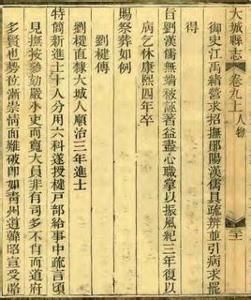 大城縣志
卷九上
人物
御史江禹緒營求招撫鄖陽漢儒具疏辨並引病求罷
台劉漢儒無端被誣著益盡心職掌以振風紀三年復以
病乞休康熙四年卒
賜祭葬如例
劉楗傳
劉楗直隸大城人順治三年進士
特簡新進士十人分用六科遂授楗戶部給事中疏言頃
見撫按參劾嚴小吏而寬大員非有司多不肖而道府
多賢也勢位漸崇情面難破即如青州道韓昭宣受賂